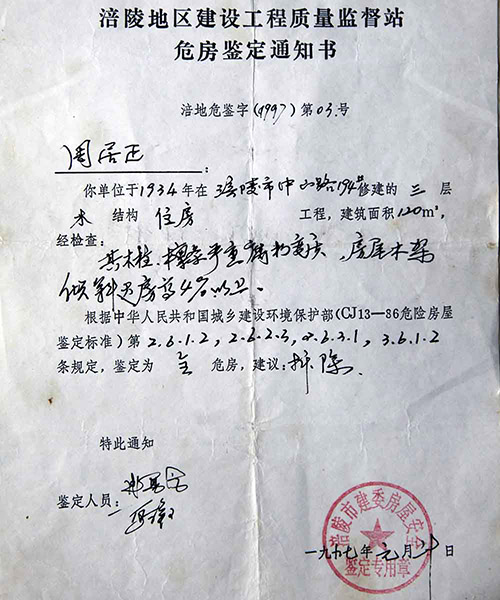 涪陵地区建设工程质量监督站
危房鉴定通知书
涪地危鉴字(1997)第03号
周居正：
你单位于1934年在涪陵市中山路194#修建的三层
木结构住房工程，建筑面积120m²，
经检查：
其木柱、檩条严重腐朽变质、房屋木架
倾斜达房高4%以上。
根据中华人民共和国城乡建设环境保护部(CJ13—86危险房屋
鉴定标准)第2.6.1.2，2.6.2.3，2.6.3.1，3.6.1.2
条规定，鉴定为全危房，建议：拆除。
特此通知
鉴定人员：
涪陵市建委房屋安全
鉴定专用章
一九九七年元月二十日